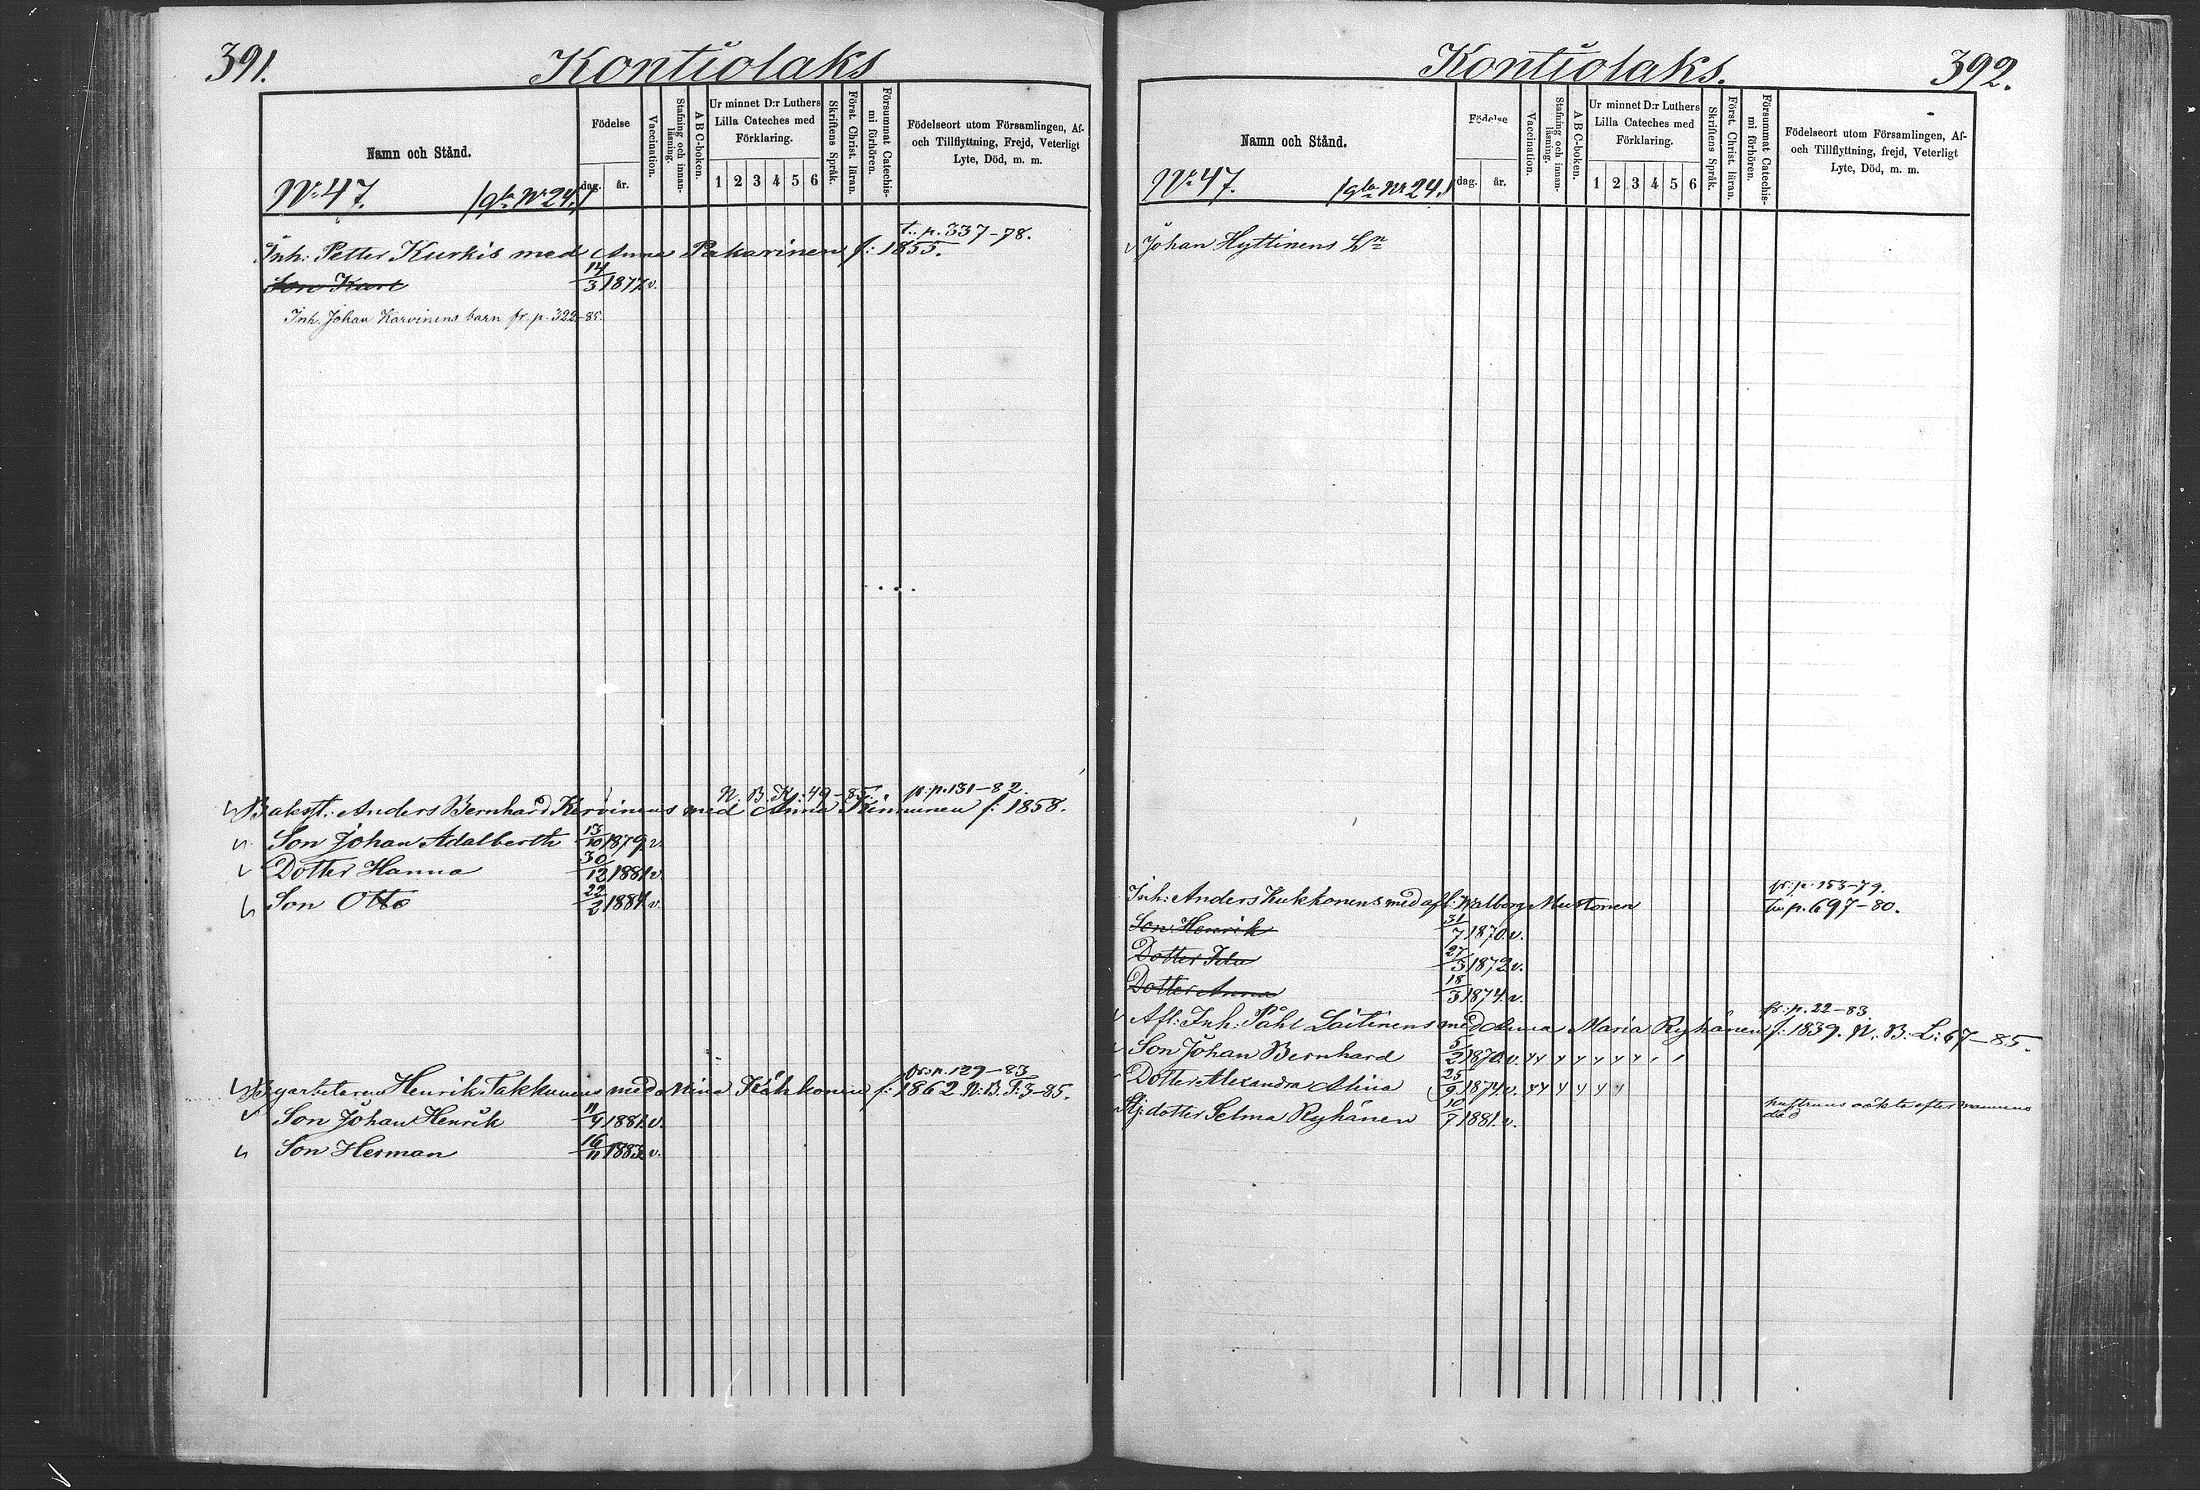 391.
Kontiolaks
Namn och Stånd.
Födelse
dag.
år.
Vaccination.
Stafning och innanläsning.
ABC-boken.
Ur minnet D:r Luthers
Lilla Cateches med
Förklaring.
1 2 3 4 5 6
Skriftens Språk.
Först. Christ. läran.
Försummat Catechismi förhören.
Födelseort utom Församlingen, Af-
och Tillflyttning, Frejd, Veterligt
Lyte, Död, m. m.
No 47. /gla No 24./
t. p. 337-78.
Inh: Petter Kurkis med Anna Pakarinen f: 1855.
Son Karl 14/3 1877 v.
Inh. Johan Karvinens barn fr. p. 322-85.
N. B. K: 49-85. fr: p. 131-82.
Anders Bernhard Kervinens med Anna f: 1858.
Son Johan Adalberth 13/10 1879 v.
Dotter Hanna 30/12 1881 v.
Son Otto 22/2 1884 v.
fr: p. 129-83
Henrik Takkunens med f: 1862 N: B. T: 3-85.
Son Johan Henrik 11/4 1881 v.
Son Herman 16/11 1883 v.
Kontiolaks.
392.
Namn och Stånd.
Födelse
dag.
år.
Vaccination.
Stafning och innanläsning.
ABC-boken.
Ur minnet D:r Luthers
Lilla Cateches med
Förklaring.
1 2 3 4 5 6
Skriftens Språk.
Först. Christ. läran.
Försummat Catechismi förhören.
Födelseort utom Församlingen, Af-
och Tillflyttning, frejd, Veterligt
Lyte, Död, m. m.
No 47. /gla No 24./
Johan Hyttinens
fr: p. 153-79.
Inh: Anders Kukkonens med afl: Walborg Mustonen p. 697-80.
Son Henrik 31/7 1870 v.
Dotter Ida 27/3 1872 v.
Dotter Anna 18/3 1874 v.
fr: p. 22-83.
Afl: Inh: Påhl Laitinens med Anna Maria Ryhänen f: 1839. N. B. L: 67-85.
Son Johan Bernhard 5/2 1870 v.
Dotter Alexandra Alina 25/9 1874 v.
dotter Selma Ryhänen 10/7 1881 v. hustruns oäkta efter mannens
död